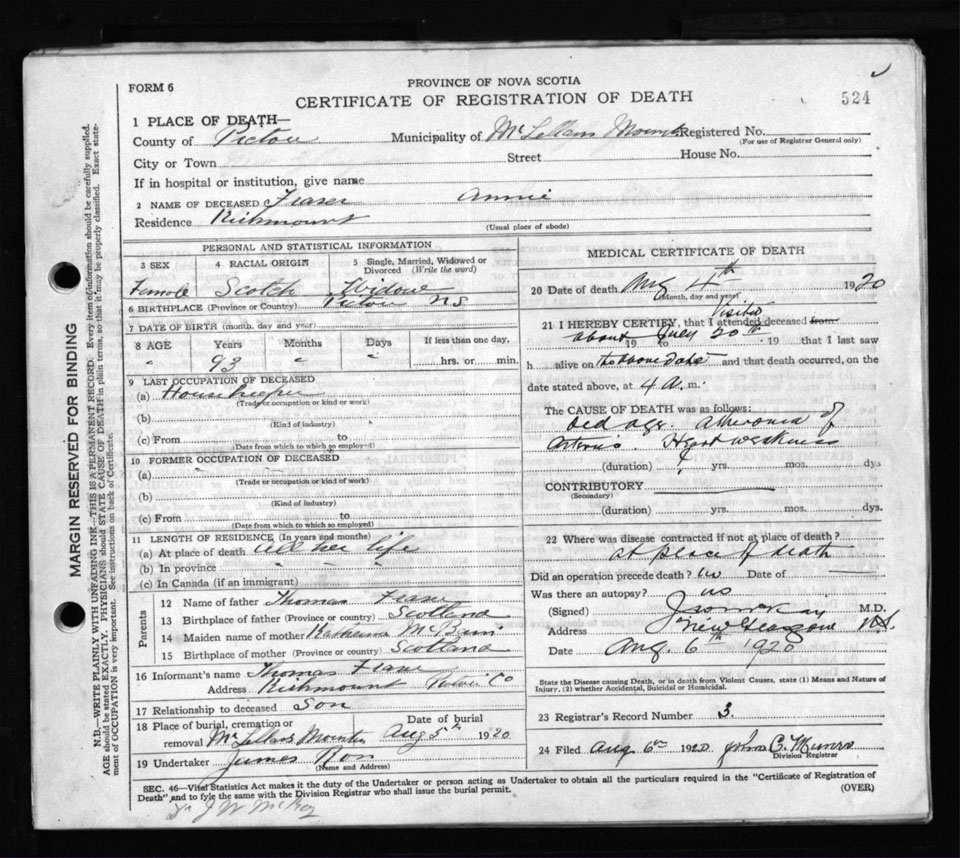 PROVINCE OF NOVA SCOTIA
FORM 6
CERTIFICATE OF REGISTRATION OF DEATH
524
1 PLACE OF DEATH—
County of Pictou Municipality of McLellans Mountn Registered No.
(For use of Registrar General only)
City or Town Street House No.
If in hospital or institution, give name
2 NAME OF DECEASED Fraser Annie
Residence Richmount
(Usual place of abode)
PERSONAL AND STATISTICAL INFORMATION
3 SEX 4 RACIAL ORIGIN 5 Single, Married, Widowed or Divorced (Write the word)
Female Scotch Widow
6 BIRTHPLACE (Province or Country) Pictou NS
7 DATE OF BIRTH (month, day and year)
8 AGE Years Months Days If less than one day,
" 93 " " hrs. or min.
9 LAST OCCUPATION OF DECEASED
(a) Housekeeper
(Trade or occupation or kind or work)
(b)
(Kind of industry)
(c) From to
(Date from which to which so employed)
10 FORMER OCCUPATION OF DECEASED
(a)
(Trade or occupation or kind of work)
(b)
(Kind of industry)
(c) From to
(Date from which to which so employed)
11 LENGTH OF RESIDENCE (In years and months)
(a) At place of death all her life
(b) In province " " "
(c) In Canada (if an immigrant)
Parents
12 Name of father Thomas Fraser
13 Birthplace of father (Province or Country) Scotland
14 Maiden name of mother McBain
15 Birthplace of mother (Province or country) Scotland
16 Informant's name Thomas Fraser
Address Richmount Pictou Co
17 Relationship to deceased Son
18 Place of burial, cremation or Date of burial
removal McLellans Mountn Aug 5th 1920
19 Undertaker James Ross
(Name and Address)
MEDICAL CERTIFICATE OF DEATH
20 Date of death Aug 4th 1920
(Month, day and year)
Visited
21 I HEREBY CERTIFY, that I attended deceased from
about July 20th 19 19 that I last saw
h alive on the above date and that death occurred, on the
date stated above, at 4 a. m.
The CAUSE OF DEATH was as follows:
Old age. Atheroma of
Arteries. Heart weakness
(duration) yrs. mos. dys
CONTRIBUTORY
(Secondary)
(duration) yrs. mos. dys.
22 Where was disease contracted if not at place of death?
at place of death
Did an operation precede death? no Date of
Was there an autopsy? no
(Signed) M.D.
Address New Glasgow N.S.
Date Aug. 6th 1920
State the Disease causing Death, or in death from Violent Causes, state (1) Means and Nature of
Injury, (2) whether Accidental, Suicidal or Homicidal.
23 Registrar's Record Number 3.
24 Filed Aug 6th 1920 John C. Munro
Division Registrar
SEC. 46—Vital Statistics Act makes it the duty of the Undertaker or person acting as Undertaker to obtain all the particulars required in the "Certificate of Registration of
Death" and to fyle the same with the Division Registrar who shall issue the burial permit.
(OVER)
Dr J W McKay
MARGIN RESERVED FOR BINDING
N.B.—WRITE PLAINLY WITH UNFADING INK—THIS IS A PERMANENT RECORD. Every item of information should be carefully supplied.
AGE should be stated EXACTLY. PHYSICIANS should STATE CAUSE OF DEATH in plain terms, so that it may be properly classified. Exact state-
ment of OCCUPATION is very important. See instructions on back of Certificate.